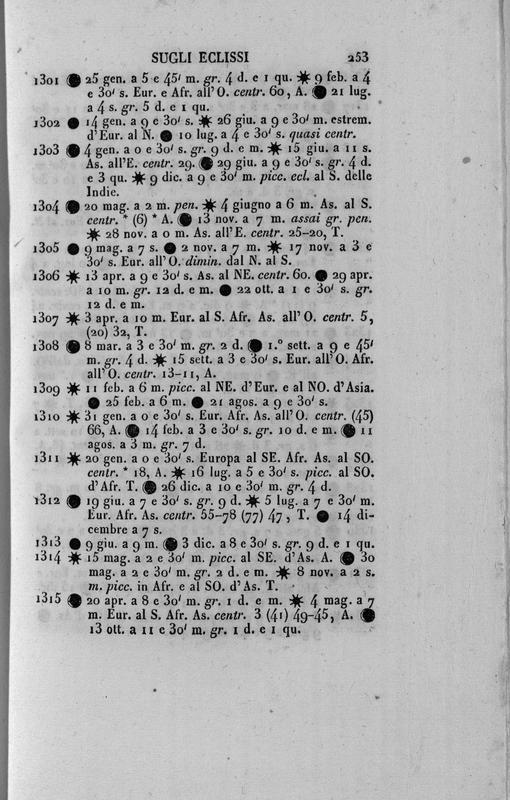 SUGLI ECLISSI 253
1301 ● 25 gen. a 5 e 45' m. gr. 4 d. e 1 qu. ✷ 9 feb. a 4
e 30' s. Eur. e Afr. all'O. centr. 60, A. ● 21 lug.
a 4 s. gr. 5 d. e 1 qu.
1302 ● 14 gen. a 9 e 30' s. ✷ 26 giu. a 9 e 30' m. estrem.
d'Eur. al N. ● 10 lug. a 4 e 30' s. quasi centr.
1303 ● 4 gen. a 0 e 30' s. gr. 9 d. e m. ✷ 15 giu. a 11 s.
As. all'E. centr. 29. ● 29 giu. a 9 e 30' s. gr. 4 d.
e 3 qu. ✷ 9 dic. a 9 e 30' m. picc. ecl. al S. delle
Indie.
1304 ● 20 mag. a 2 m. pen. ✷ 4 giugno a 6 m. As. al S.
centr. * (6) * A. ● 13 nov. a 7 m. assai gr. pen.
✷ 28 nov. a 0 m. As. all'E. centr. 25-20, T.
1305 ● 9 mag. a 7 s. ● 2 nov. a 7 m. ✷ 17 nov. a 3 e
30' s. Eur. all'O. dimin. dal N. al S.
1306 ✷ 13 apr. a 9 e 30' s. As. al NE. centr. 60. ● 29 apr.
a 10 m. gr. 12 d. e m. ● 22 ott. a 1 e 30' s. gr.
12 d. e m.
1307 ✷ 3 apr. a 10 m. Eur. al S. Afr. As. all'O. centr. 5,
(20) 32, T.
1308 ● 8 mar. a 3 e 30' m. gr. 2 d. ● 1.° sett. a 9 e 45'
m. gr. 4 d. ✷ 15 sett. a 3 e 30' s. Eur. all'O. Afr.
all'O. centr. 13-11, A.
1309 ✷ 11 feb. a 6 m. picc. al NE. d'Eur. e al NO. d'Asia.
● 25 feb. a 6 m. ● 21 agos. a 9 e 30' s.
1310 ✷ 31 gen. a 0 e 30' s. Eur. Afr. As. all'O. centr. (45)
66, A. ● 14 feb. a 3 e 30' s. gr. 10 d. e m. ● 11
agos. a 3 m. gr. 7 d.
1311 ✷ 20 gen. a 0 e 30' s. Europa al SE. Afr. As. al SO.
centr. * 18, A. ✷ 16 lug. a 5 e 30' s. picc. al SO.
d'Afr. T. ● 26 dic. a 10 e 30' m. gr. 4 d.
1312 ● 19 giu. a 7 e 30' s. gr. 9 d. ✷ 5 lug. a 7 e 30' m.
Eur. Afr. As. centr. 55-78 (77) 47, T. ● 14 di-
cembre a 7 s.
1313 ● 9 giu. a 9 m. ● 3 dic. a 8 e 30' s. gr. 9 d. e 1 qu.
1314 ✷ 15 mag. a 2 e 30' m. picc. al SE. d'As. A. ● 30
mag. a 2 e 30' m. gr. 2 d. e m. ✷ 8 nov. a 2 s.
m. picc. in Afr. e al SO. d'As. T.
1315 ● 20 apr. a 8 e 30' m. gr. 1 d. e m. ✷ 4 mag. a 7
m. Eur. al S. Afr. As. centr. 3 (41) 49-45, A. ●
13 ott. a 11 e 30' m. gr. 1 d. e 1 qu.